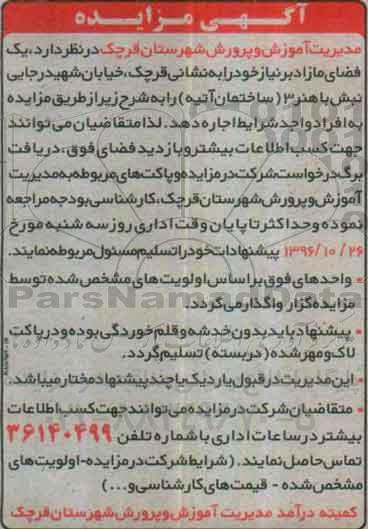 آگهی مزایده
مدیریت آموزش و پرورش شهرستان قرچک در نظر دارد، یک
فضای مازاد بر نیاز خود را به نشانی قرچک، خیابان شهید رجایی
نبش باهنر ۳ (ساختمان آتیه) را به شرح زیر از طریق مزایده
به افراد واجد شرایط اجاره دهد. لذا متقاضیان می توانند
جهت کسب اطلاعات بیشتر و بازدید فضای فوق، دریافت
برگ درخواست شرکت در مزایده و پاکت های مربوطه به مدیریت
آموزش و پرورش شهرستان قرچک، کارشناسی بودجه مراجعه
نموده و حداکثر تا پایان وقت اداری روز سه شنبه مورخ
۱۳۹۶/۱۰/۲۶ پیشنهادات خود را تسلیم مسئول مربوطه نمایند.
• واحدهای فوق بر اساس اولویت های مشخص شده توسط
مزایده گزار واگذار می گردد.
• پیشنهاد باید بدون خدشه و قلم خوردگی بوده و در پاکت
لاک و مهر شده (در بسته) تسلیم گردد.
• این مدیریت در قبول یا رد یک یا چند پیشنهاد مختار میباشد.
• متقاضیان شرکت در مزایده می توانند جهت کسب اطلاعات
بیشتر در ساعات اداری با شماره تلفن ۳۶۱۴۰۴۹۹
تماس حاصل نمایند. (شرایط شرکت در مزایده - اولویت های
مشخص شده - قیمت های کارشناسی و...)
کمیته درآمد مدیریت آموزش و پرورش شهرستان قرچک
ParsNamadData